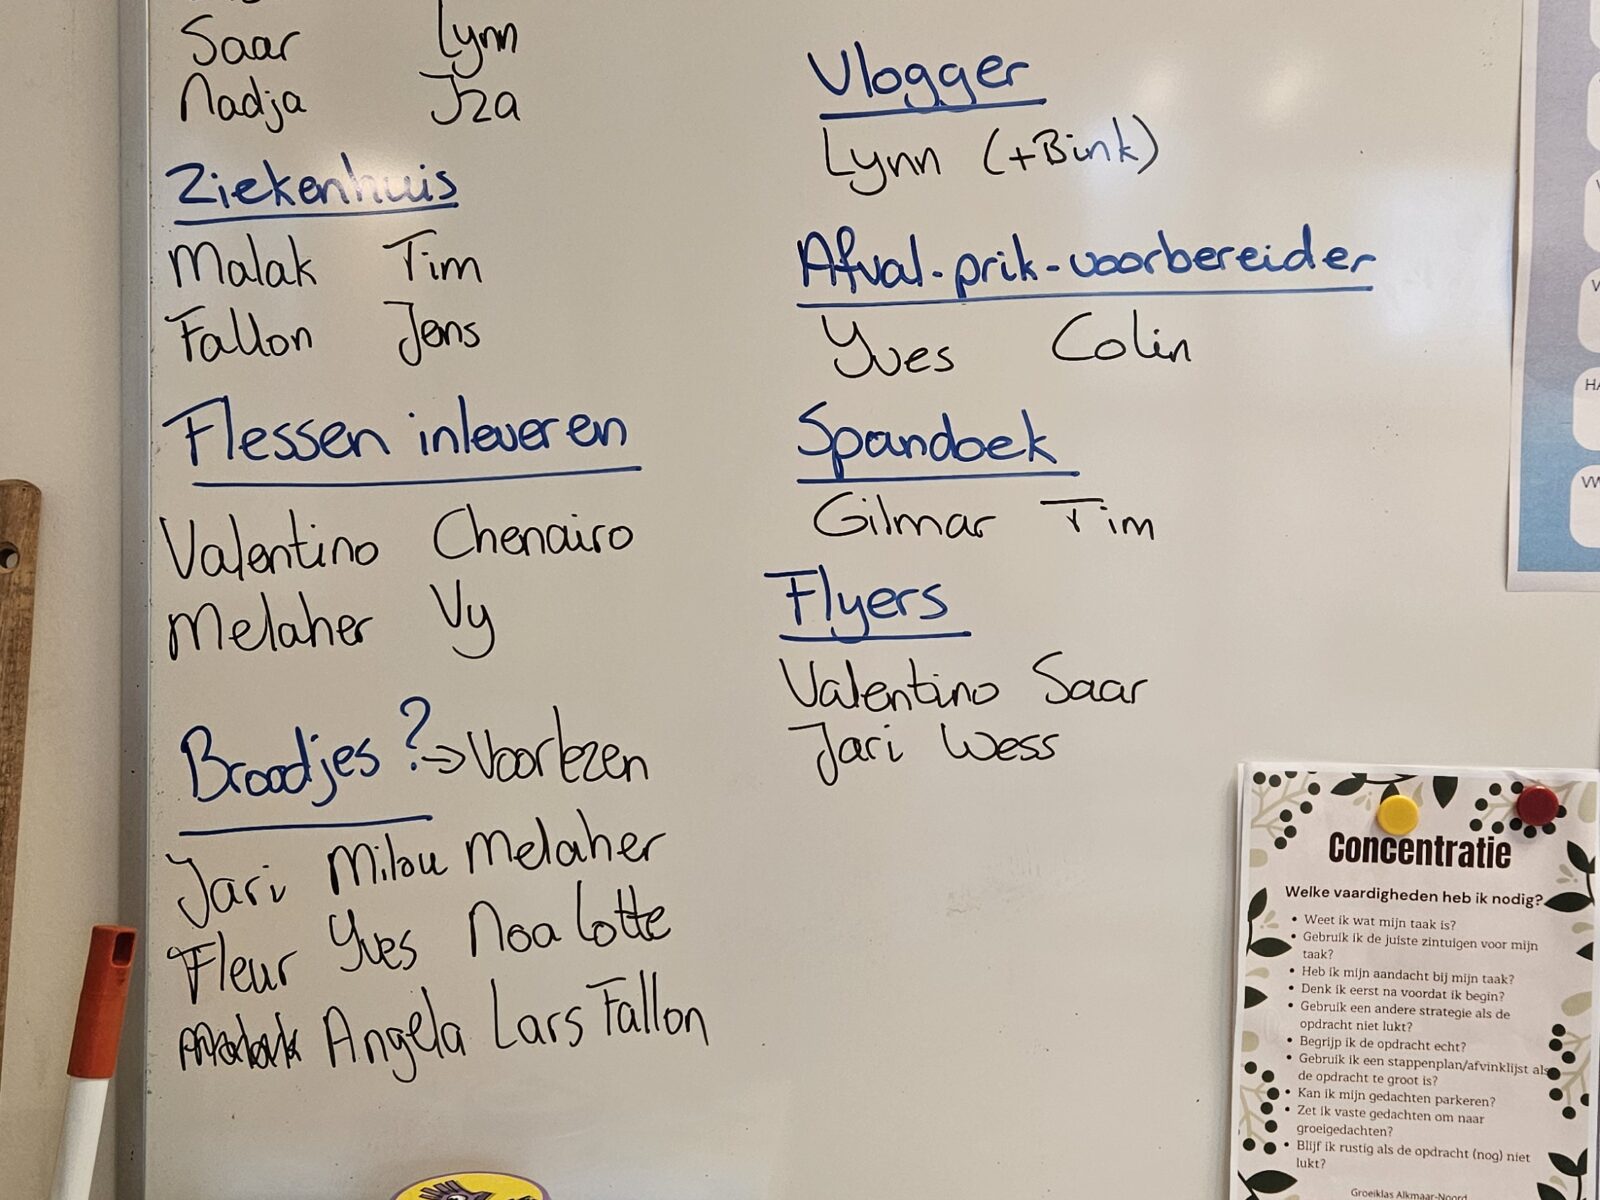 Saar Lynn
Nadja Iza
Ziekenhuis
Malak Tim
Fallon Jens
Flessen inleveren
Valentino Chenairo
Melaher Vy
Broodjes? → Voorlezen
Jari Milou Melaher
Fleur Yves Noa Lotte
Malak Angela Lars Fallon
Vlogger
Lynn (+Bink)
Afval-prik-voorbereider
Yves Colin
Spandoek
Gilmar Tim
Flyers
Valentino Saar
Jari Wess
HA
Concentratie
Welke vaardigheden heb ik nodig?
• Weet ik wat mijn taak is?
• Gebruik ik de juiste zintuigen voor mijn
taak?
• Heb ik mijn aandacht bij mijn taak?
• Denk ik eerst na voordat ik begin?
• Gebruik ik een andere strategie als de
opdracht niet lukt?
• Begrijp ik de opdracht echt?
• Gebruik ik een stappenplan/afvinklijst als
de opdracht te groot is?
• Kan ik mijn gedachten parkeren?
• Zet ik vaste gedachten om naar
groeigedachten?
• Blijf ik rustig als de opdracht (nog) niet
lukt?
Groeiklas Alkmaar-Noord